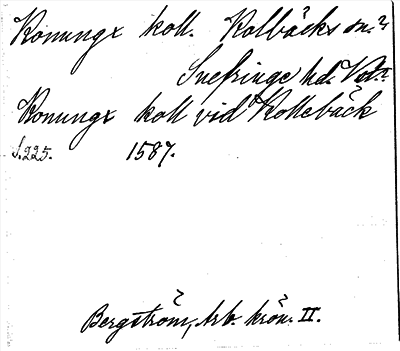 Konungx koll. Kolbäcks sn.?
Snefringe hd. Vstm.
Konungx koll vid Kollebäck
s. 225. 1587.
Bergström, Arb. krön. II.